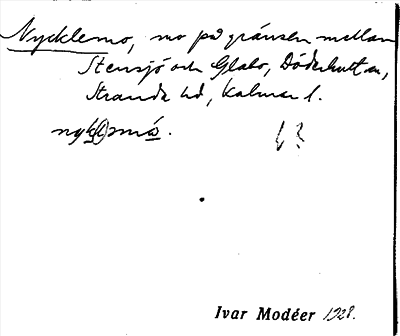 Nycklemo, mo på gränsen mellan
Stensjö och Glabo, Döderhult sn,
Stranda hd, Kalmar l.
Ivar Modéer 1928.